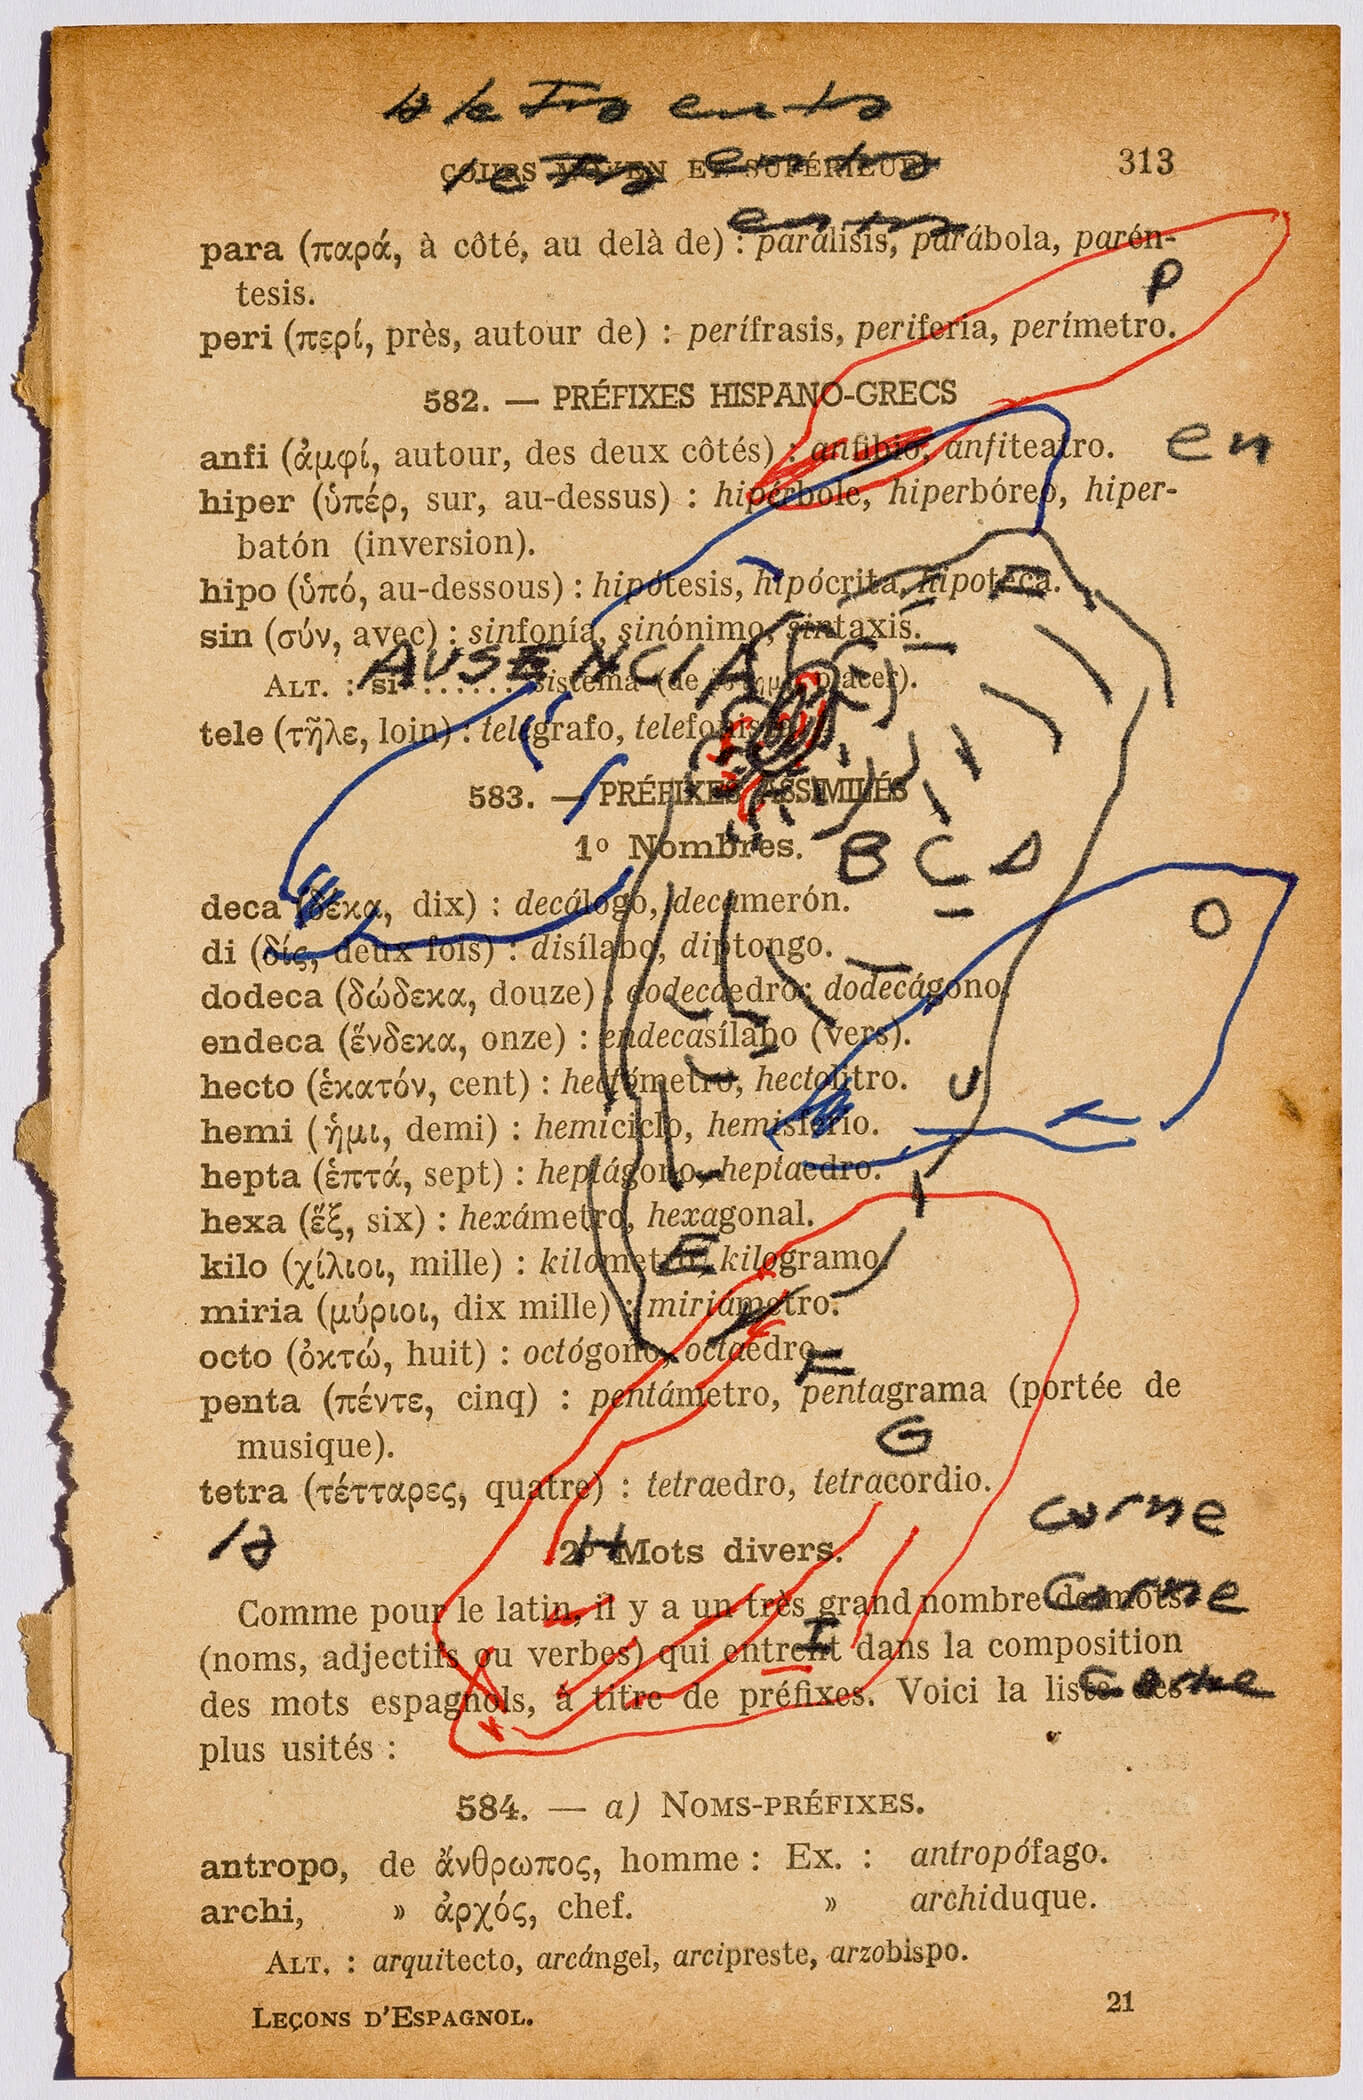 COURS MOYEN ET SUPÉRIEUR 313
para (παρά, à côté, au delà de) : parálisis, parábola, parén-
P
tesis.
peri (περί, près, autour de) : perífrasis, periferia, perímetro.
582. — PRÉFIXES HISPANO-GRECS
anfi (ἀμφί, autour, des deux côtés) : anfibio, anfiteatro.
en
hiper (ὑπέρ, sur, au-dessus) : hipérbole, hiperbóreo, hiper-
batón (inversion).
hipo (ὑπό, au-dessous) : hipótesis, hipócrita, hipoteca.
sin (σύν, avec) : sinfonía, sinónimo, sintaxis.
AUSENCIA
ALT. : si ....... sistema (de placer).
tele (τῆλε, loin) : telégrafo, telefonista.
583. — PRÉFIXES ASSIMILÉS
1º Nombres.
B C D
deca (δέκα, dix) : decálogo, decamerón.
O
di (δίς, deux fois) : disílabo, diptongo.
dodeca (δώδεκα, douze) : dodecaedro; dodecágono.
endeca (ἕνδεκα, onze) : endecasílabo (vers).
hecto (ἑκατόν, cent) : hectómetro, hectolitro.
U
hemi (ἡμι, demi) : hemiciclo, hemisferio.
hepta (ἑπτά, sept) : heptágono, heptaedro.
hexa (ἕξ, six) : hexámetro, hexagonal.
E
kilo (χίλιοι, mille) : kilómetro, kilogramo.
miria (μύριοι, dix mille) : miriámetro.
octo (ὀκτώ, huit) : octógono, octaedro.
F
penta (πέντε, cinq) : pentámetro, pentagrama (portée de
G
musique).
tetra (τέτταρες, quatre) : tetraedro, tetracordio.
la
corne
H
2º Mots divers.
Comme pour le latin, il y a un très grand nombre de mots
corne
I
(noms, adjectifs ou verbes) qui entrent dans la composition
des mots espagnols, à titre de préfixes. Voici la liste des
corne
plus usités :
584. — a) NOMS-PRÉFIXES.
antropo, de ἄνθρωπος, homme : Ex. : antropófago.
archi, » ἀρχός, chef. » archiduque.
ALT. : arquitecto, arcángel, arcipreste, arzobispo.
LEÇONS D'ESPAGNOL. 21